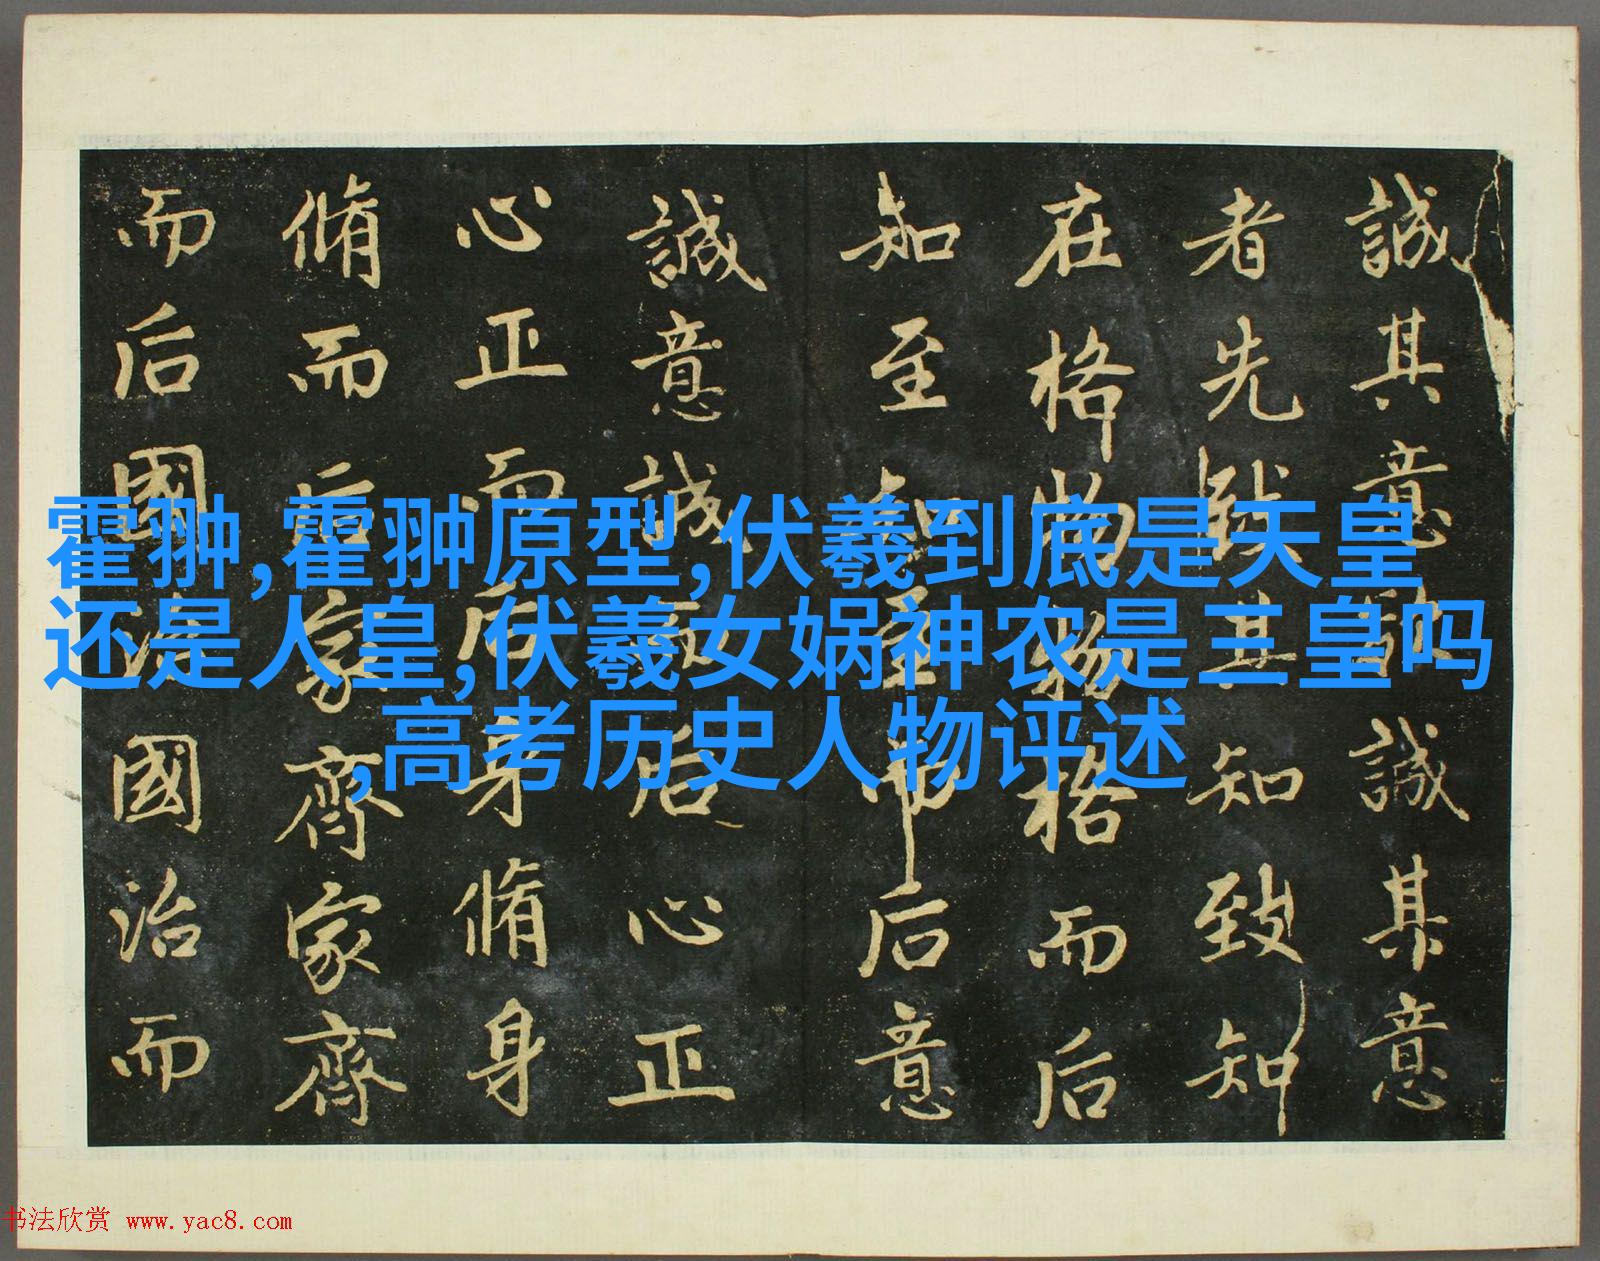 誠其意欲誠其意
者先致其知致知
在格物物格而后
知至知至而后意
誠意誠而后心正
心正而后身脩身
脩而后家齊家齊
而后國治國治而
霍翀,霍翀原型,伏羲到底是天皇
还是人皇,伏羲女娲神农是三皇吗
,高考历史人物评述
书法欣赏 www.yac8.com